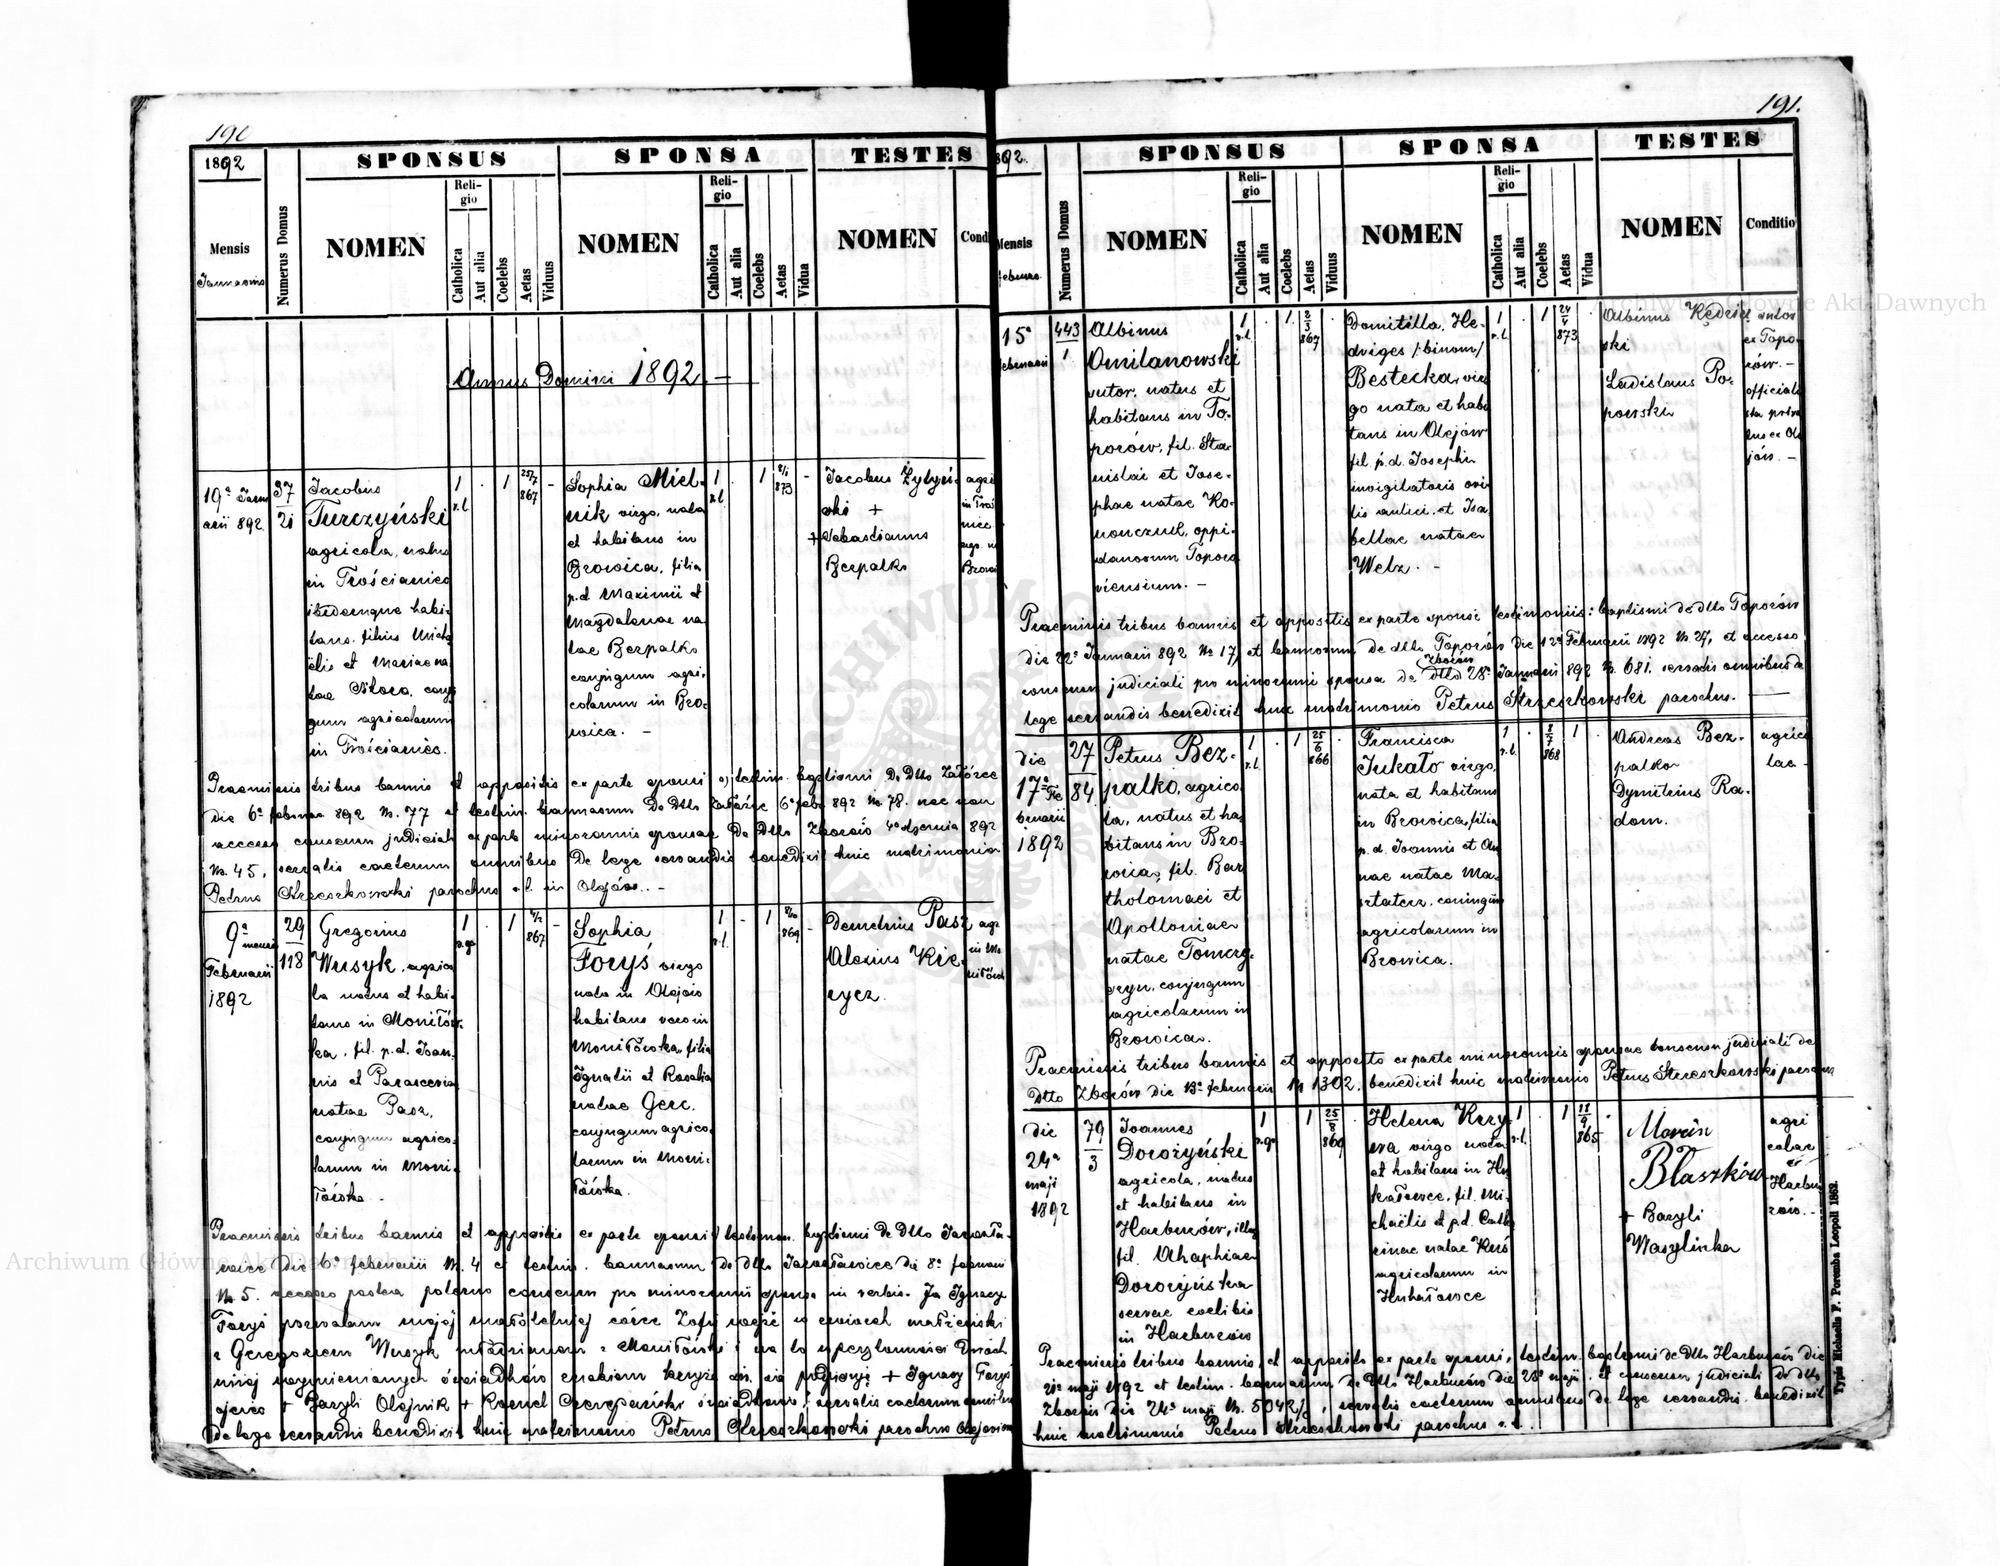 190
1892
SPONSUS
SPONSA
TESTES
Mensis
Januarius
Numerus Domus
NOMEN
Religio
Catholica
Aut alia
Coelebs
Aetas
Viduus
NOMEN
Religio
Catholica
Aut alia
Coelebs
Aetas
Vidua
NOMEN
Cond
Annus Domini 1892. —
19ª Janu
arii 892
37
21
Jacobus
Turczyński
agricola, natus
in Trościaniec
ibidemque habi-
tans, filius Mich
aëlis et Mariae na
tae
gum agricolarum
in Trościaniec.
1
r.l.
1
25/7
867
Sophia Miel-
nik virgo, nata
et habitans in
Brovica, filia
p.d. Maximi et
Magdalenae na
tae Bezpalko
conjugum agri-
colarum in Bro-
vica. —
1
r.l.
1
873
Jacobus
ski +
+ Sebastianus
Bezpalko
agri
Praemissis tribus bannis et appositis ex parte sponsi testim. baptismi de dtto Załoźce
die 6ª februar 892 N. 77 et testim. bannorum de dtto Załoźce 6ª febr 892 N. 78. nec non
accesso consensu judiciali ex parte minorennis sponsae de dtto Zborów 4ª 892
N. 45, servatis caeterum omnibus de lege servandis benedixit huic matrimonio
Petrus Strzeszkowski parochus r.l. in Olejów. —
9ª
Februarii
1892
29
118
Gregorius
Wusyk, agrico
la natus et habi-
tans in Moniłów-
ka, fil. p.d. Joan-
nis et Parasceviae
natae Pasz,
conjugum agrico-
larum in Moni-
łówka —
1
r.gr.
1
867
Sophia
Foryś virgo
nata in Olejów
habitans vero in
Moniłówka, filia
Ignatii et Rosaliae
natae Gerc.
conjugum agrico-
larum in Moni-
łówka.
1
r.l.
1
869
Demetrius Pasz
Alexius Kie-
rycz.
Praemissis tribus bannis et appositis ex parte sponsi testimon. baptismi de dtto Jarosła-
wice die 6ª februarii N. 4 et testim. bannorum de dtto Jarosławice die 8ª februarii
N. 5. accesso consensu pro minorenni sponsa in verbis. Ja Ignacy
Foryś pozwalam mojej małoletniej córce Zofii wejść w związek małżeński
z Gregorzem Wusyk z Moniłówki i na to w przytomności dwóch
niżej wymienionych świadków znakiem krzyża św. się podpisuję + Ignacy Foryś
ojciec + Bazyli Olejnik + Kornel świadkowie, servatis caeterum omnibus
de lege servandis benedixit huic matrimonio Petrus Strzeszkowski parochus Olejoviensis
191.
892.
SPONSUS
SPONSA
TESTES
Mensis
Februar.
Numerus Domus
NOMEN
Religio
Catholica
Aut alia
Coelebs
Aetas
Viduus
NOMEN
Religio
Catholica
Aut alia
Coelebs
Aetas
Vidua
NOMEN
Conditio
15ª
Februarii
443
1
Albinus
Omilanowski
sutor, natus et
habitans in To-
porów, fil. Sta-
nislai et Jose-
phae natae Ko-
nonczuk, oppi-
danorum Toporo
viensium. —
1
r.l.
1
2
3
867
Domitilla, He-
dviges /binom/
Bestecka, vir
go nata et habi
tans in Olejów
fil. p.d. Josephi
invigilatoris ovi
lis aulici, et Isa
bellae natae
Welz. —
1
r.l.
1
24
4
873
Albinus Kędzier
ski
Ladislaus Po-
powski
sutor
ex Topo-
rów. —
officiali
sta priva
tus ex Ole
jów. —
Praemissis tribus bannis et appositis ex parte sponsi testimoniis: baptismi de dtto Toporów
die 22ª Januarii 892 No 17, et bannorum de dtto Toporów die 12ª Februarii 1892 N. 27, et accesso
consensu judiciali pro minorenni sponsa de dtto Zborów 28ª Januarii 892 N. 681. servatis omnibus de
lege servandis benedixit huic matrimonio Petrus Strzeszkowski parochus. —
die
17ª Fe
bruarii
1892
27
84
Petrus Bez-
palko, agrico
la, natus et ha
bitans in Bro-
vica, fil. Bar
tholomaei et
Apolloniae
natae Tomczy-
szyn, conjugum
agricolarum in
Brovica.
1
r.l.
1
25
6
866
Francisca
Jukało virgo,
nata et habitans
in Brovica, filia
p.d. Joannis et An
nae natae Ma-
sztalerz, conjugum
agricolarum in
Brovica.
1
r.l.
8
7
868
1
Andreas Bez-
palko
Dymitrius Ra-
dom.
agrico
lae —
Praemissis tribus bannis et apposito ex parte minorennis sponsae consensu judiciali de
dtto Zborów die 13ª februarii N 1302. benedixit huic matrimonio Petrus Strzeszkowski parochus
die
24ª
maji
1892
79
3
Joannes
Dorożyński
agricola, natus
et habitans in
Harbuzów, illeg
fil. Ahaphiae
Dorożyńska
servae coelibis
in Harbuzów
1
r.gr.
1
25
8
869
Helena Krzy
wa virgo nata
et habitans in Hu
kałowce, fil. Mi-
chaëlis et p.d. Cathe
rinae natae Kuś
agricolarum in
Hukałowce
1
r.l.
1
11
9
865
Marcin
Błaszków
+ Bazyli
Wasylinka
agri
colae
ex
Harbu
zów. —
Praemissis tribus bannis, et apposito ex parte sponsi, testim. baptismi de dtto Harbuzów die
21ª maji 1892 et testim. bannorum de dtto Harbuzów die 23ª maji, et consensu judiciali de dtto
Zborów die 24ª maji N. 5042/, servatis caeterum omnibus de lege servandis, benedixit
huic matrimonio Petrus Strzeszkowski parochus r.l.
Typis Michaelis F. Poremba Leopoli 1862.
Archiwum Główne Akt Dawnych
Archiwum Główne Akt Dawnych